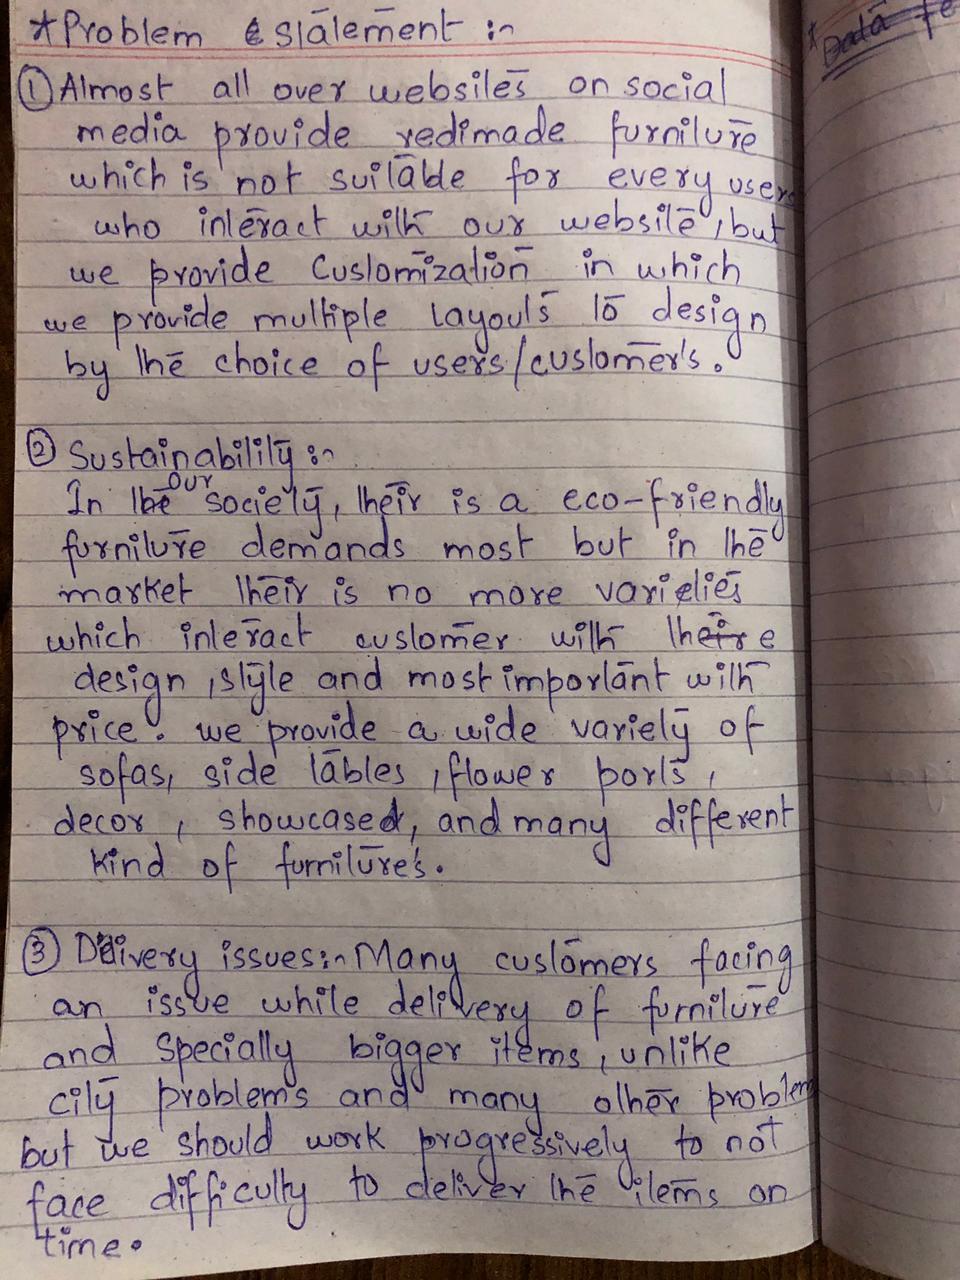 *Problem statement :-
① Almost all over websites on social
media provide redimade furniture
which is not suitable for every users
who interact with our website, but
we provide Customization in which
we provide multiple Layouts to design
by the choice of users/customer's.
② Sustainability :-
In our society, their is a eco-friendly
furniture demands most but in the
market their is no more varieties
which interact customer with the
design, style and most important with
price. we provide a wide variety of
sofas, side tables, flower ports,
decor, showcased, and many different
kind of furniture's.
③ Delivery issues:- Many customers facing
an issue while delivery of furniture
and specially bigger items, unlike
city problems and many other problem
but we should work progressively to not
face difficulty to deliver the items on
time.
* Data